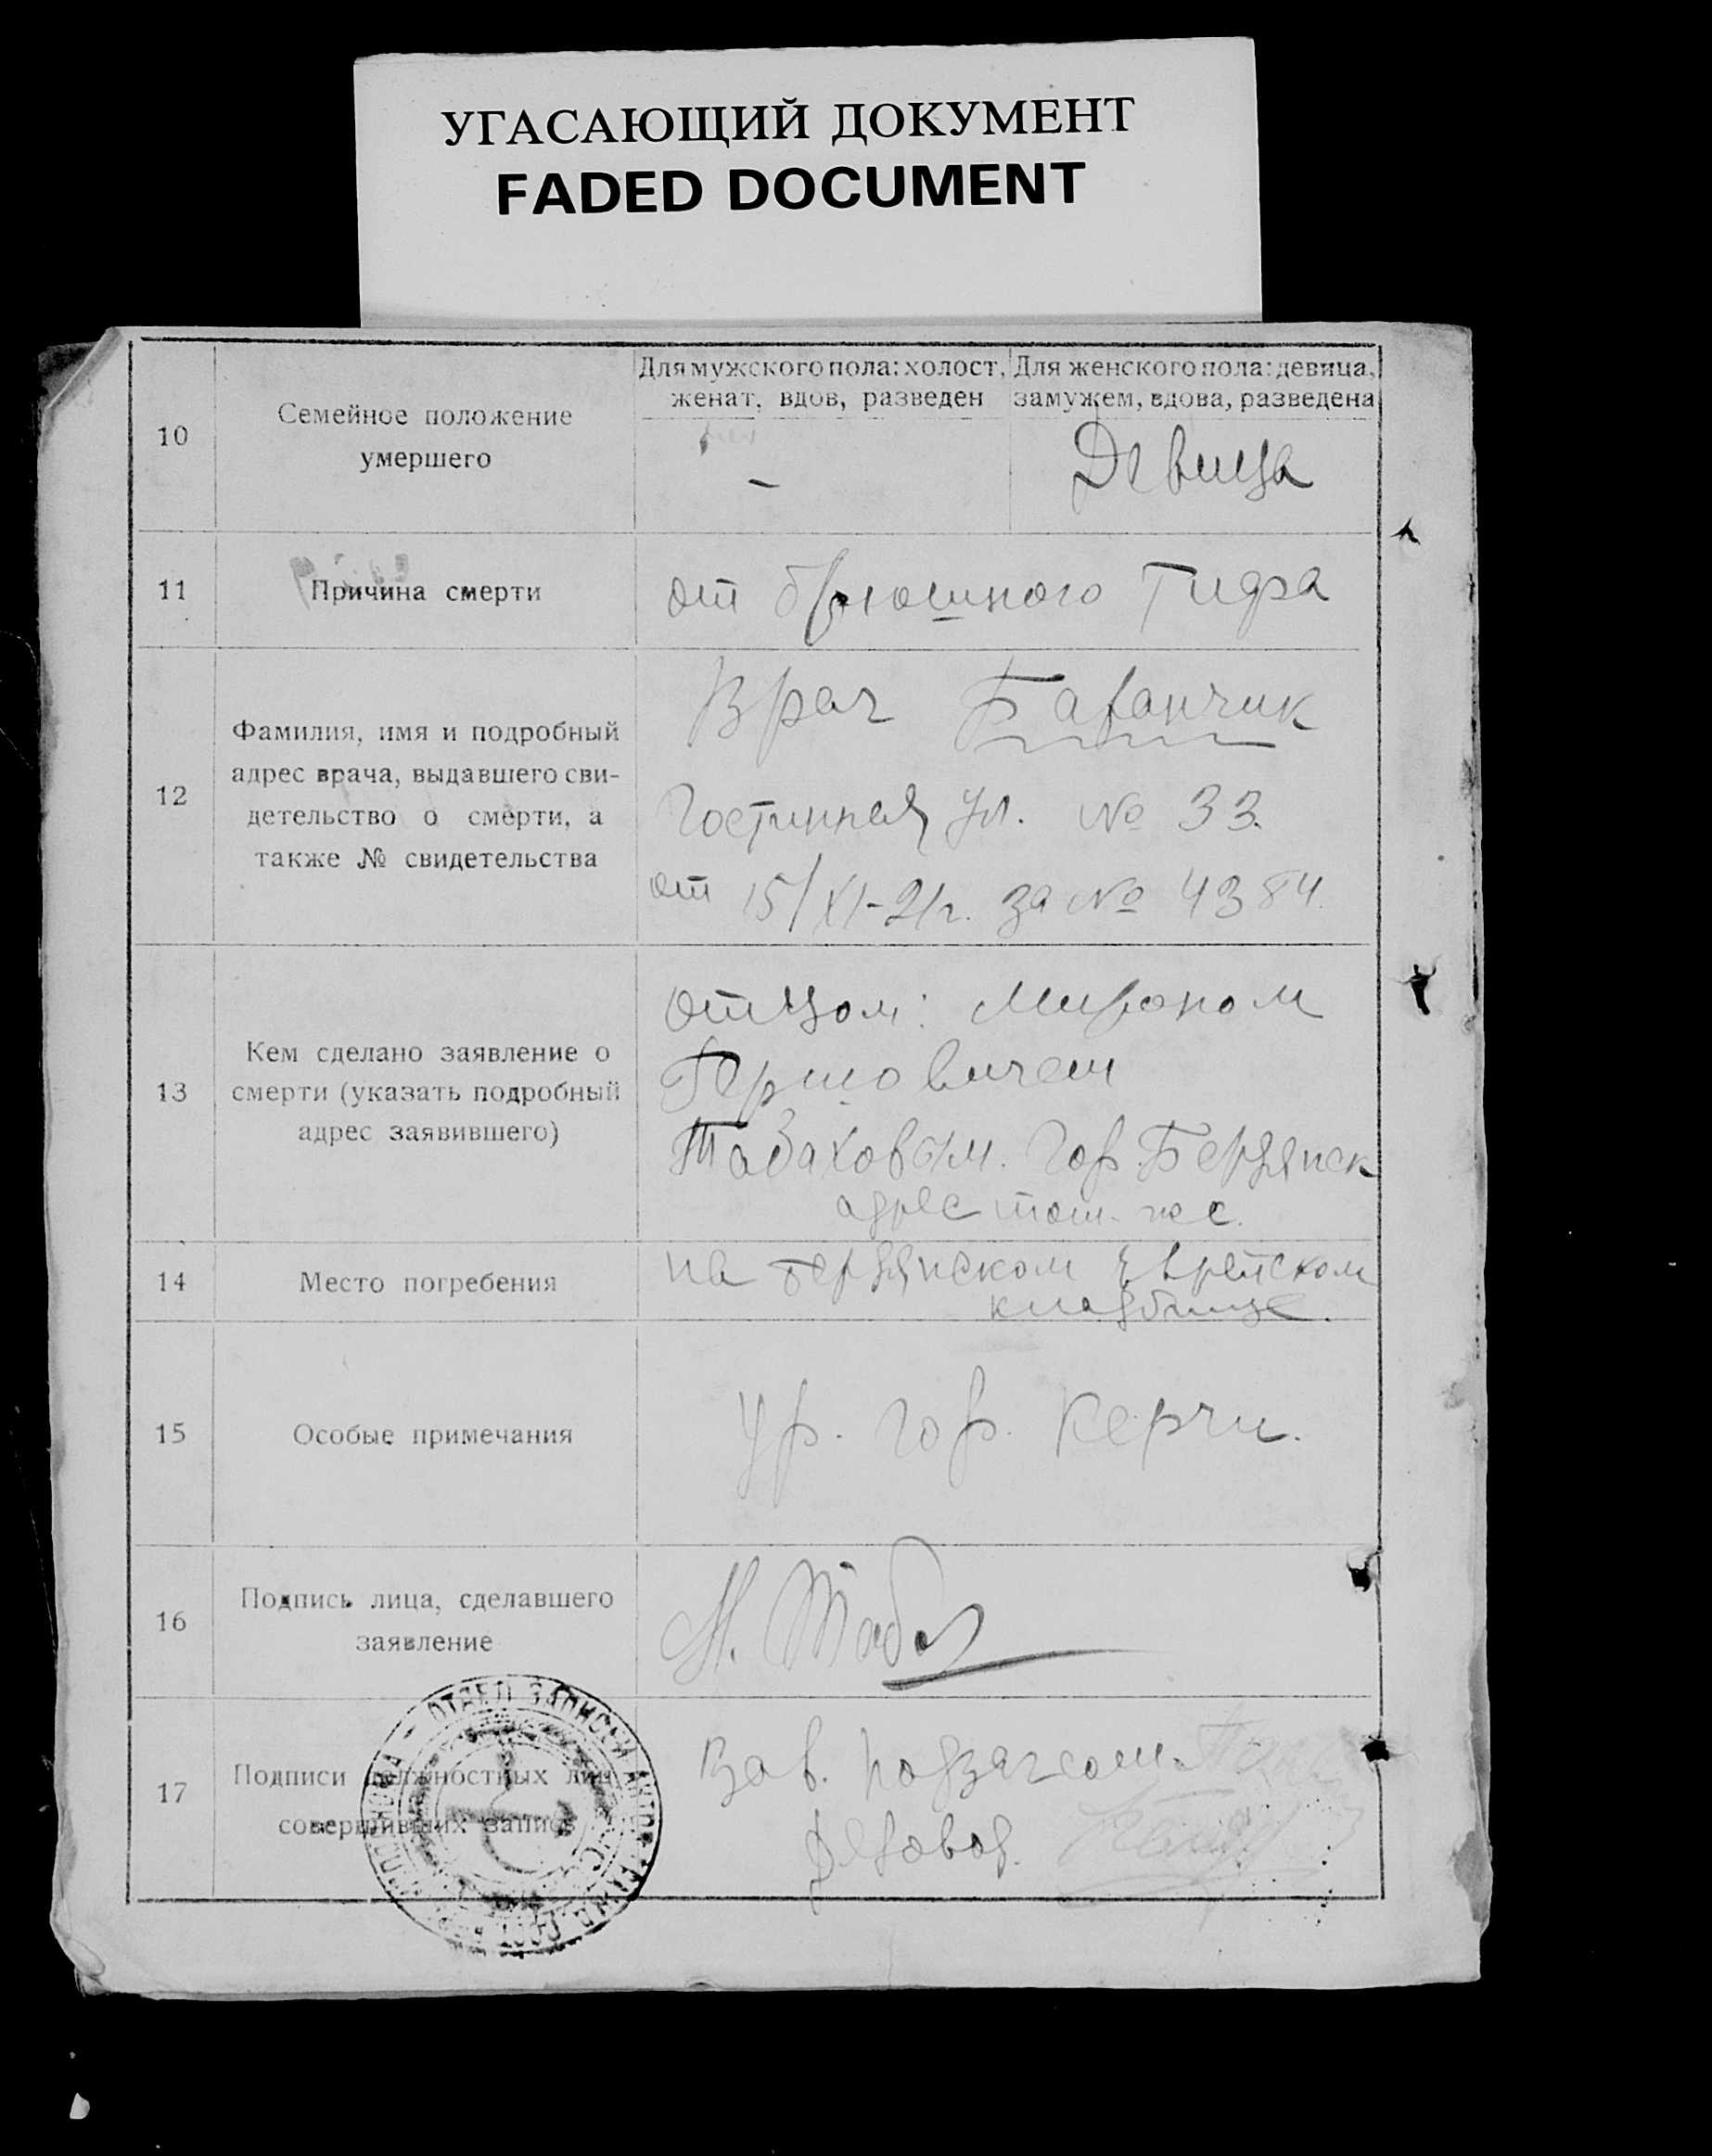 УГАСАЮЩИЙ ДОКУМЕНТ
FADED DOCUMENT
10
Семейное положение
умершего
Для мужского пола: холост,
женат, вдов, разведен
–
Для женского пола: девица,
замужем, вдова, разведена
Девица
11
Причина смерти
от брюшного Тифа
12
Фамилия, имя и подробный
адрес врача, выдавшего сви-
детельство о смерти, а
также № свидетельства
Врач Баранчик
Гостинная ул. № 33.
от 15/XI-21г. за № 4384.
13
Кем сделано заявление о
смерти (указать подробный
адрес заявившего)
отцом: Мироном
Гершовичем
Гор. Бердянск
адрес
14
Место погребения
на бердянском Еврейском
кладбище.
15
Особые примечания
Ур. гор. Керчи.
16
Подпись лица, сделавшего
заявление
М.
17
Подписи должностных лиц,
совершивших запись
Зав.
Деловод.
ОТДЕЛ ЗАПИСЕЙ АКТОВ